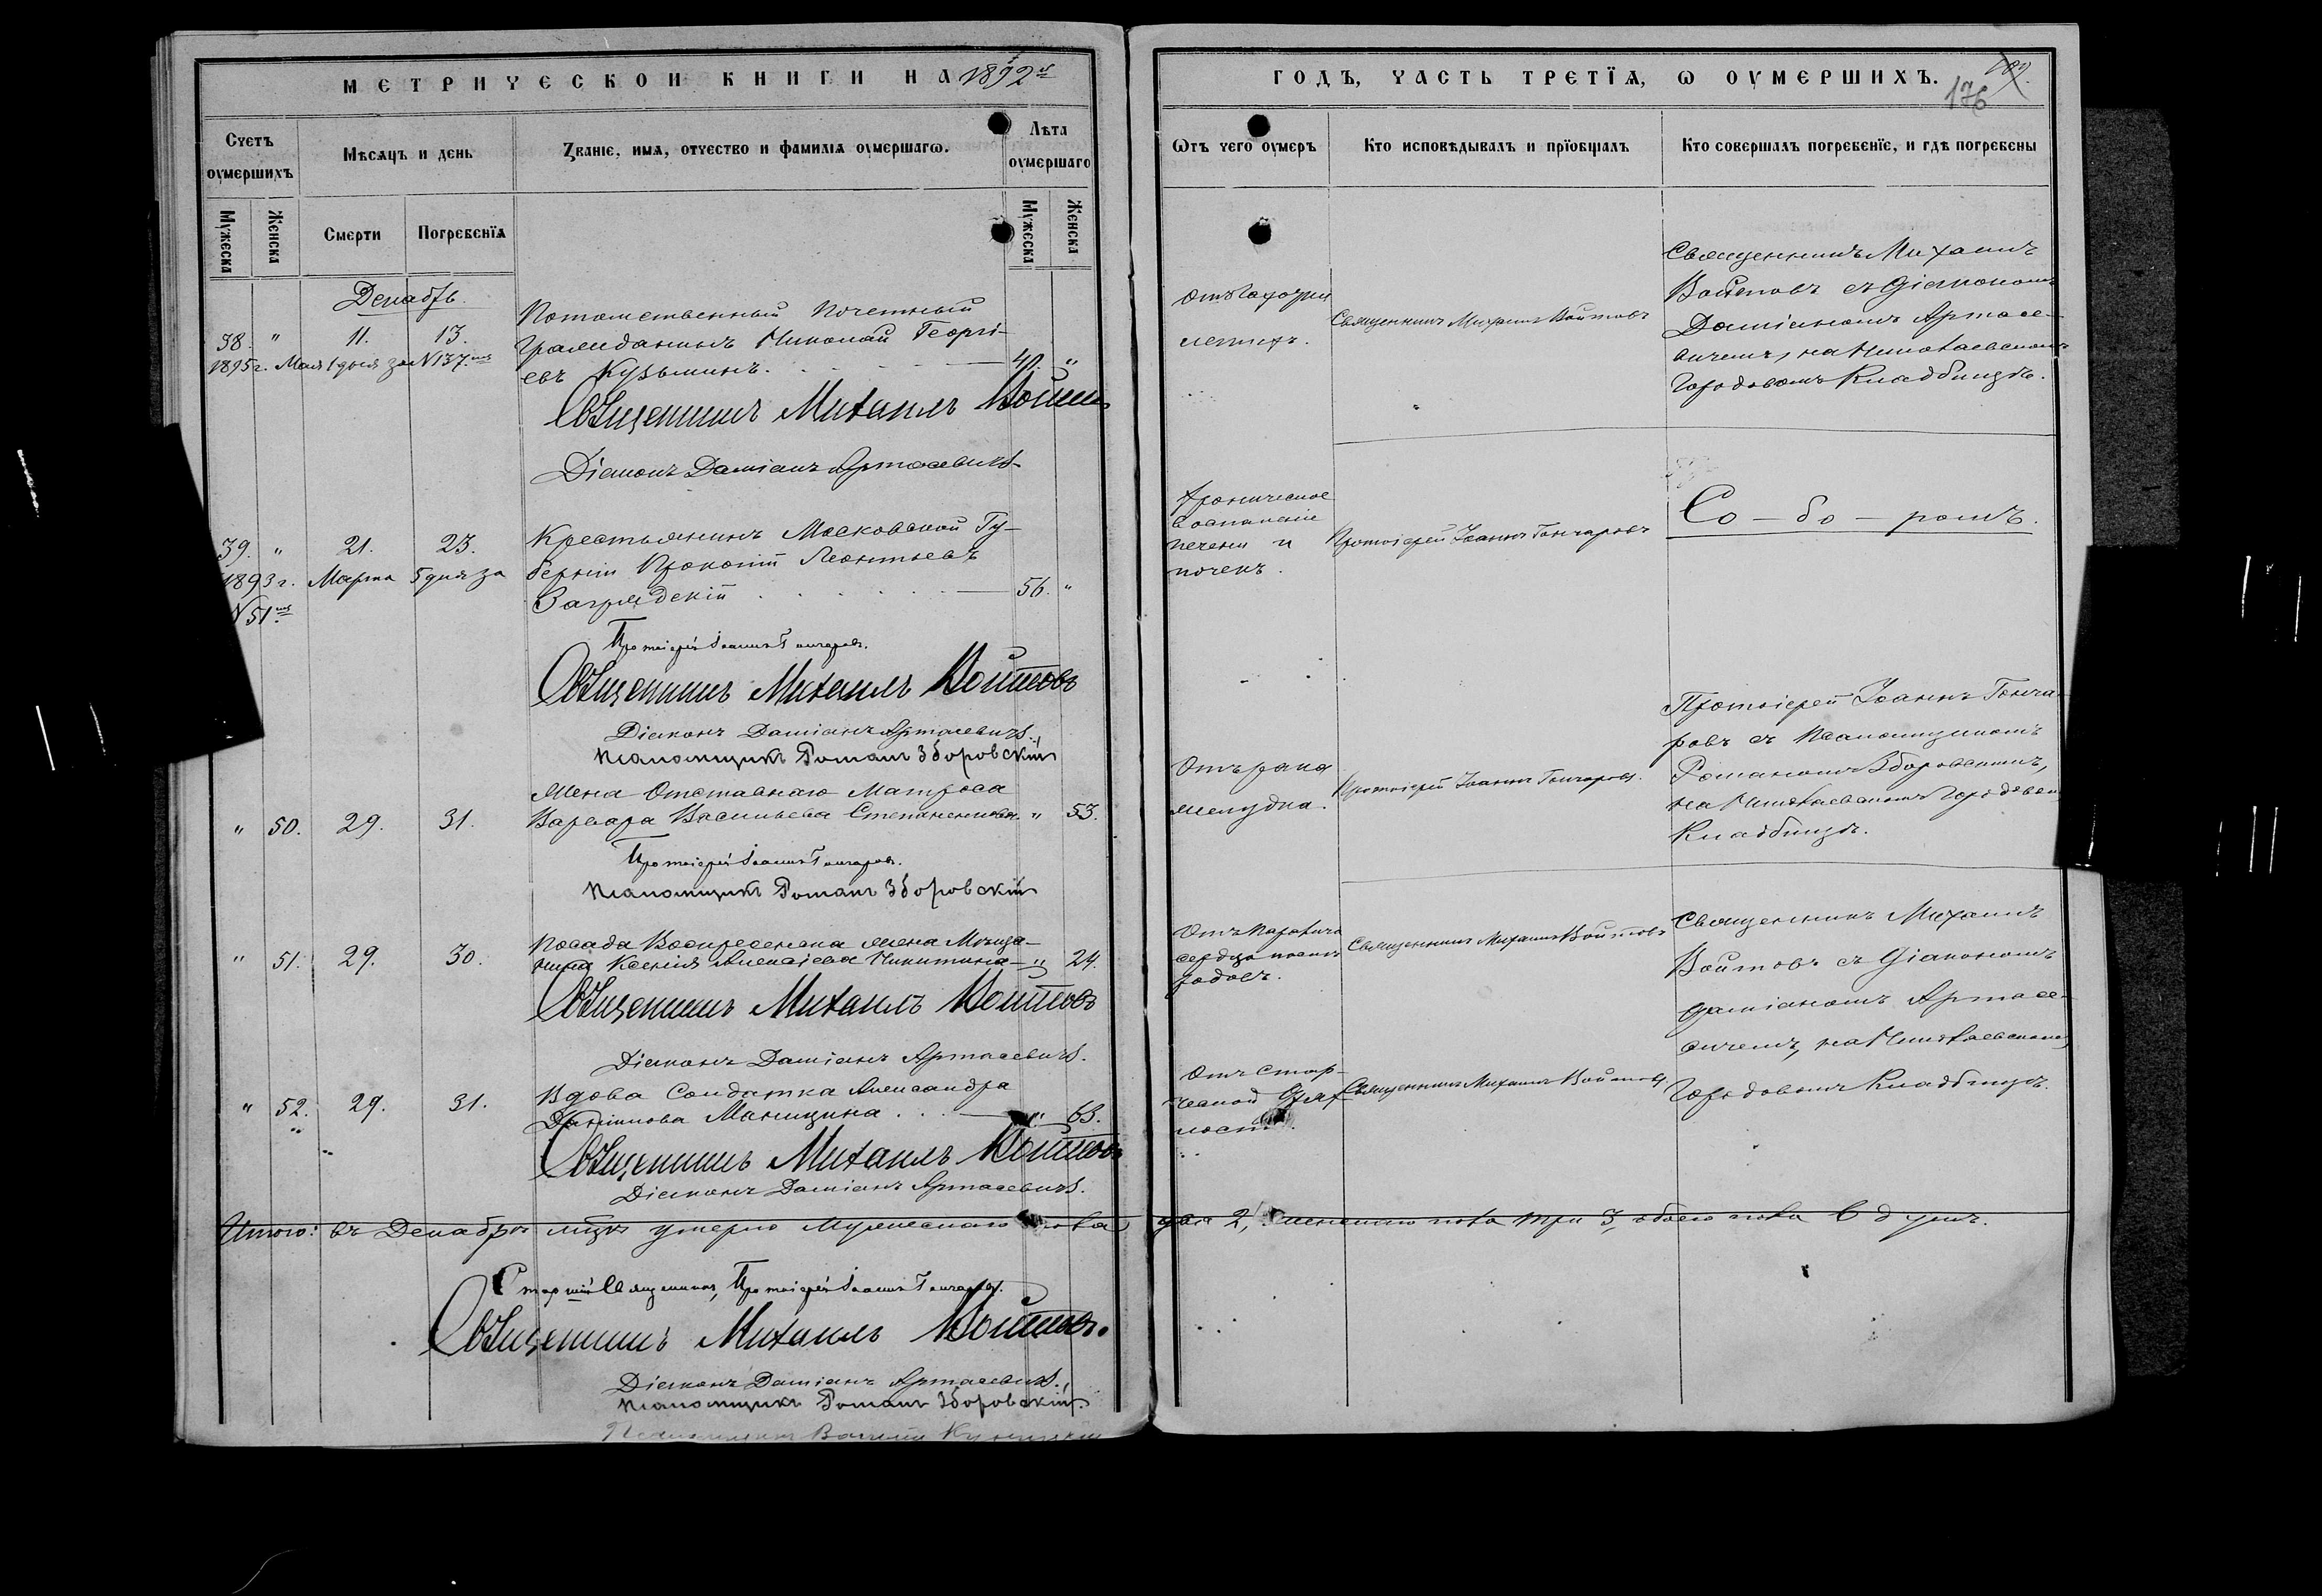 МЕТРИЧЕСКОЙ КНИГИ НА 1892й
Счетъ оумершихъ
Мѣсяцъ и день
Званіе, имя, отчество и фамилія оумершагω.
Лѣта оумершаго
Мужеска
Женска
Смерти
Погребенїя
Мужеска
Женска
Декабрь.
38. " 11. 13. Потомственный Почетный
Гражданинъ Николай Георгі-
1895 г. Мая 1 дня за N 137.
евъ Кузьминъ. 40. "
Священникъ Михаилъ Войтовъ
Діаконъ Даміанъ Артасевичъ
39. " 21. 23. Крестьянинъ Московской Гу-
1893 г. Марта 5 дня за
N 51
берніи Прокопій Леонтьевъ
Загрядскій 56. "
Протоіерей Іоаннъ Гончаровъ.
Священникъ Михаилъ Войтовъ
Діаконъ Даміанъ Артасевичъ.
Псаломщикъ Романъ Зборовскій
" 50. 29. 31. Жена Отставнаго Матроса
Варвара Васильева Степаненкова. " 53.
Протоіерей Іоаннъ Гончаровъ.
Псаломщикъ Романъ Зборовскій
" 51. 29. 30. Посада Воскресенска жена Мѣща-
нина Ксенія Алексіева Никитина " 24.
Священникъ Михаилъ Войтовъ
Діаконъ Даміанъ Артасевичъ.
" 52. 29. 31. Вдова Солдатка Александра
Даніилова " 63.
Священникъ Михаилъ Войтовъ
Діаконъ Даміанъ Артасевичъ.
Итого: въ Декабрѣ м҃цѣ умерло Мужескаго пола
Старшій Священникъ, Протоіерей Іоаннъ Гончаровъ.
Священникъ Михаилъ Войтовъ.
Діаконъ Даміанъ Артасевичъ.
Псаломщикъ Романъ Зборовскій.
ГОДЪ, ЧАСТЬ ТРЕТЇЯ, Ѡ ОУМЕРШИХЪ.
176
Ѡтъ чего оумеръ
Кто исповѣдывалъ и прїобщалъ
Кто совершалъ погребенїе, и гдѣ погребены
Отъ Чахотки
легкихъ.
Священникъ Михаилъ Войтовъ
Священникъ Михаилъ
Войтовъ съ Діакономъ
Даміаномъ Артасе-
вичемъ, на Николаевскомъ
Городовомъ Кладбищѣ.
Хроническое
воспаленіе
печени и
почекъ.
Протоіерей Іоаннъ Гончаровъ
Со - бо - ромъ.
Отъ рака
желудка.
Протоіерей Іоаннъ Гончаровъ.
Протоіерей Іоаннъ Гонча-
ровъ съ Псаломщикомъ
Романомъ Зборовскимъ,
на Николаевскомъ Городовом
Кладбищѣ.
Отъ Паралича
сердца послѣ
родовъ.
Священникъ Михаилъ Войтовъ
Священникъ Михаилъ
Войтовъ съ Діакономъ
Даміаномъ Артасе-
вичемъ, на Николаевскомъ
Городовомъ Кладбищѣ.
Отъ Стар-
ческой Дрях-
лости.
Священникъ Михаилъ Войтовъ
два 2, женскаго пола три 3, обоего пола душъ.